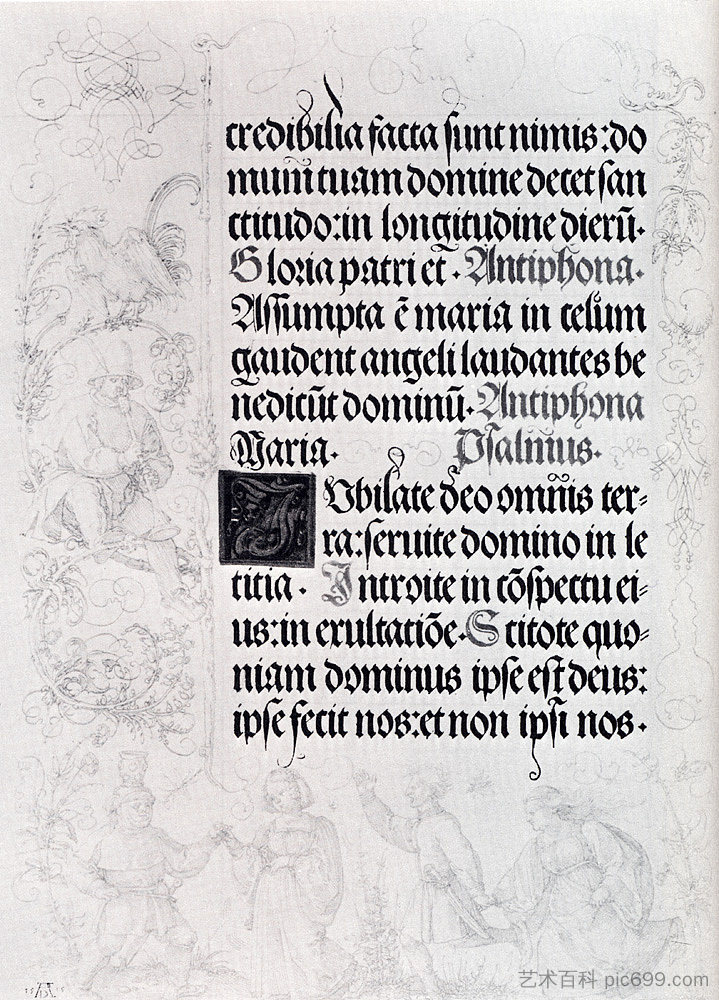 credibilia facta sunt nimis: do
mum tuam domine decet san
ctitudo: in longitudine dierū.
Gloria patri et. Antiphona.
Assumpta ē maria in celum
gaudent angeli laudantes be
nedicūt dominū. Antiphona
Maria. Psalmus.
IVbilate deo omnis ter=
ra: seruite domino in le
titia. Introite in cōspectu ei=
us: in exultatiōe. Scitote quo=
niam dominus ipse est deus:
ipse fecit nos: et non ipsi nos.
15 AD 15
艺术百科 pic699.com